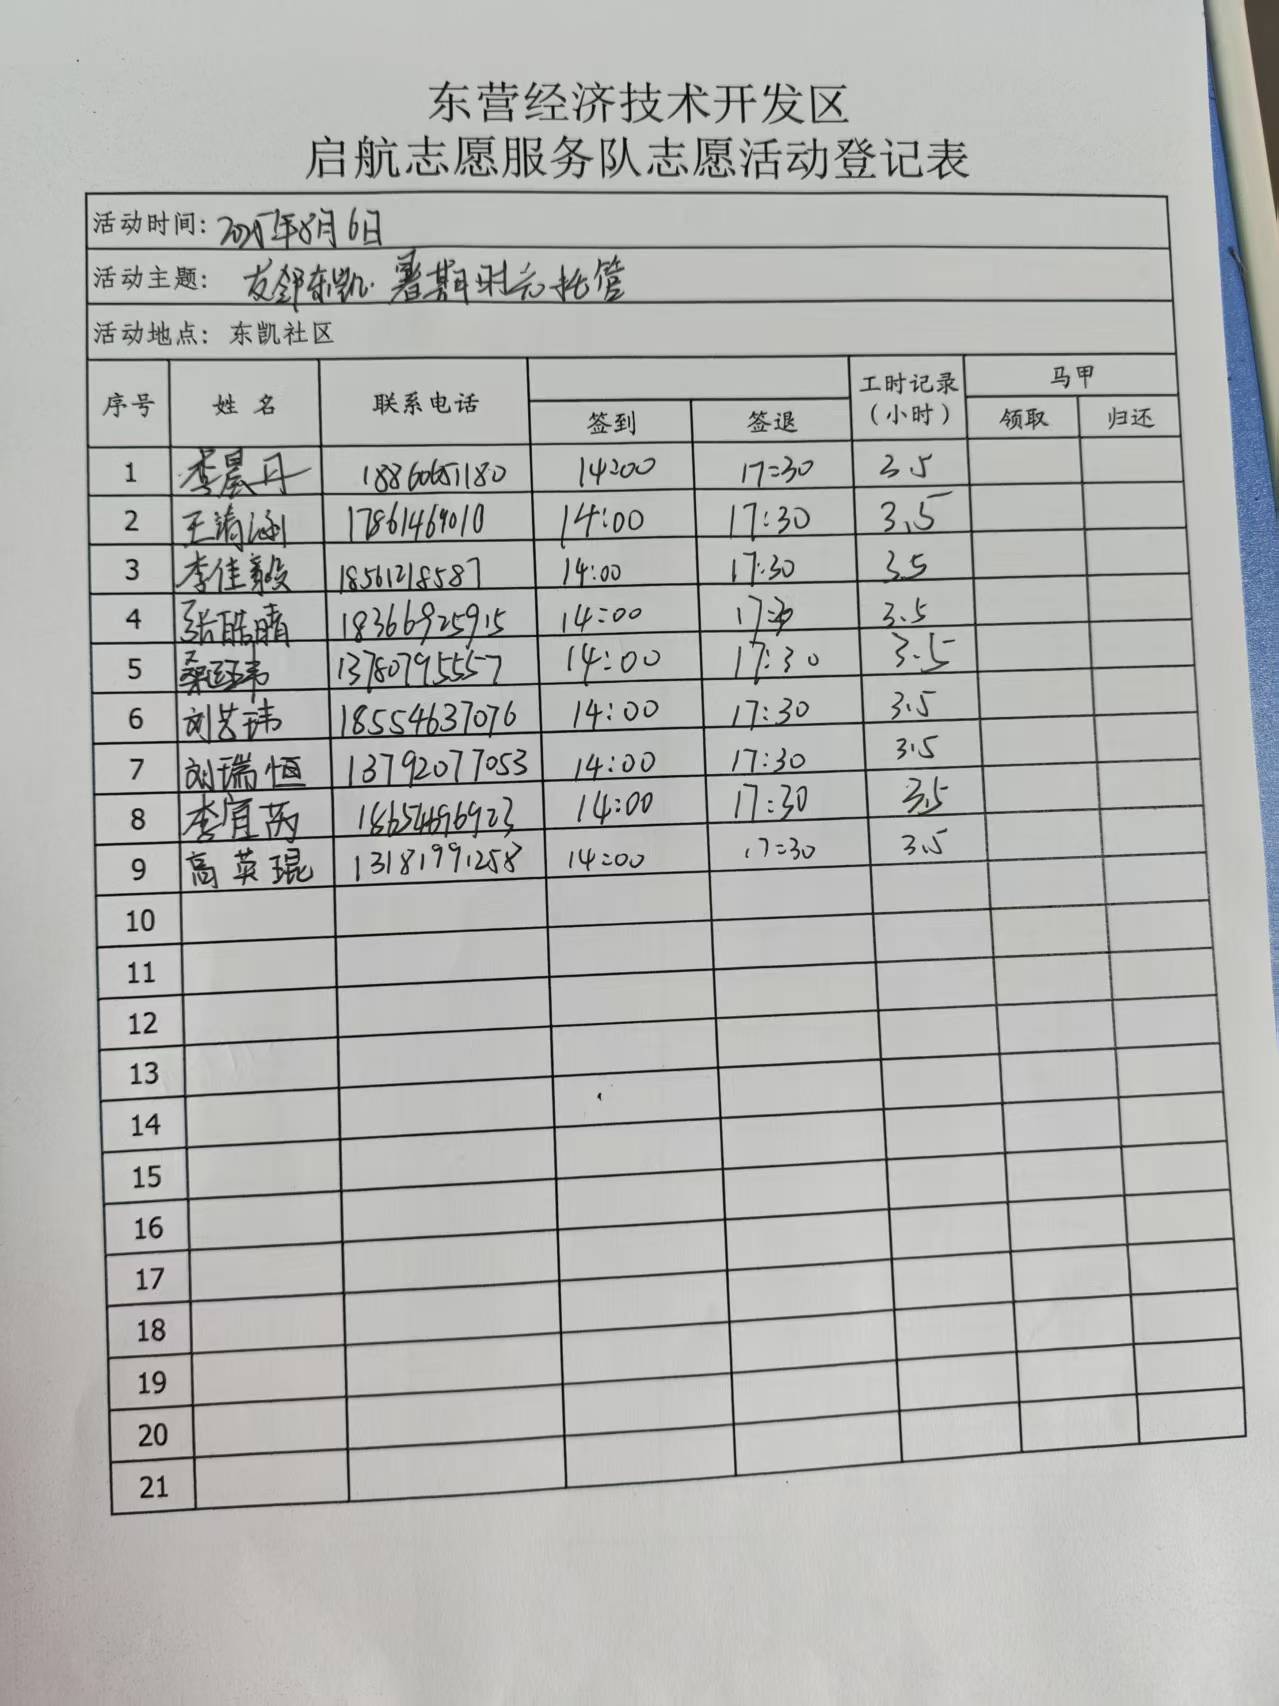 东营经济技术开发区
启航志愿服务队志愿活动登记表
活动时间: 2025年8月6日
活动主题: 友邻东凯·暑期时光托管
活动地点: 东凯社区
序号 姓名 联系电话 签到 签退 工时记录(小时) 马甲 领取 归还
1 李晨丹 18860651180 14:00 17:30 3.5
2 王靖涵 17861469010 14:00 17:30 3.5
3 李佳毅 18561218587 14:00 17:30 3.5
4 张皓晴 18366925915 14:00 17:30 3.5
5 桑 玮 13780795557 14:00 17:30 3.5
6 刘艺玮 18554637076 14:00 17:30 3.5
7 刘瑞恒 13792077053 14:00 17:30 3.5
8 李宜芮 18654696923 14:00 17:30 3.5
9 高英琨 13181991258 14:00 17:30 3.5
10
11
12
13
14
15
16
17
18
19
20
21